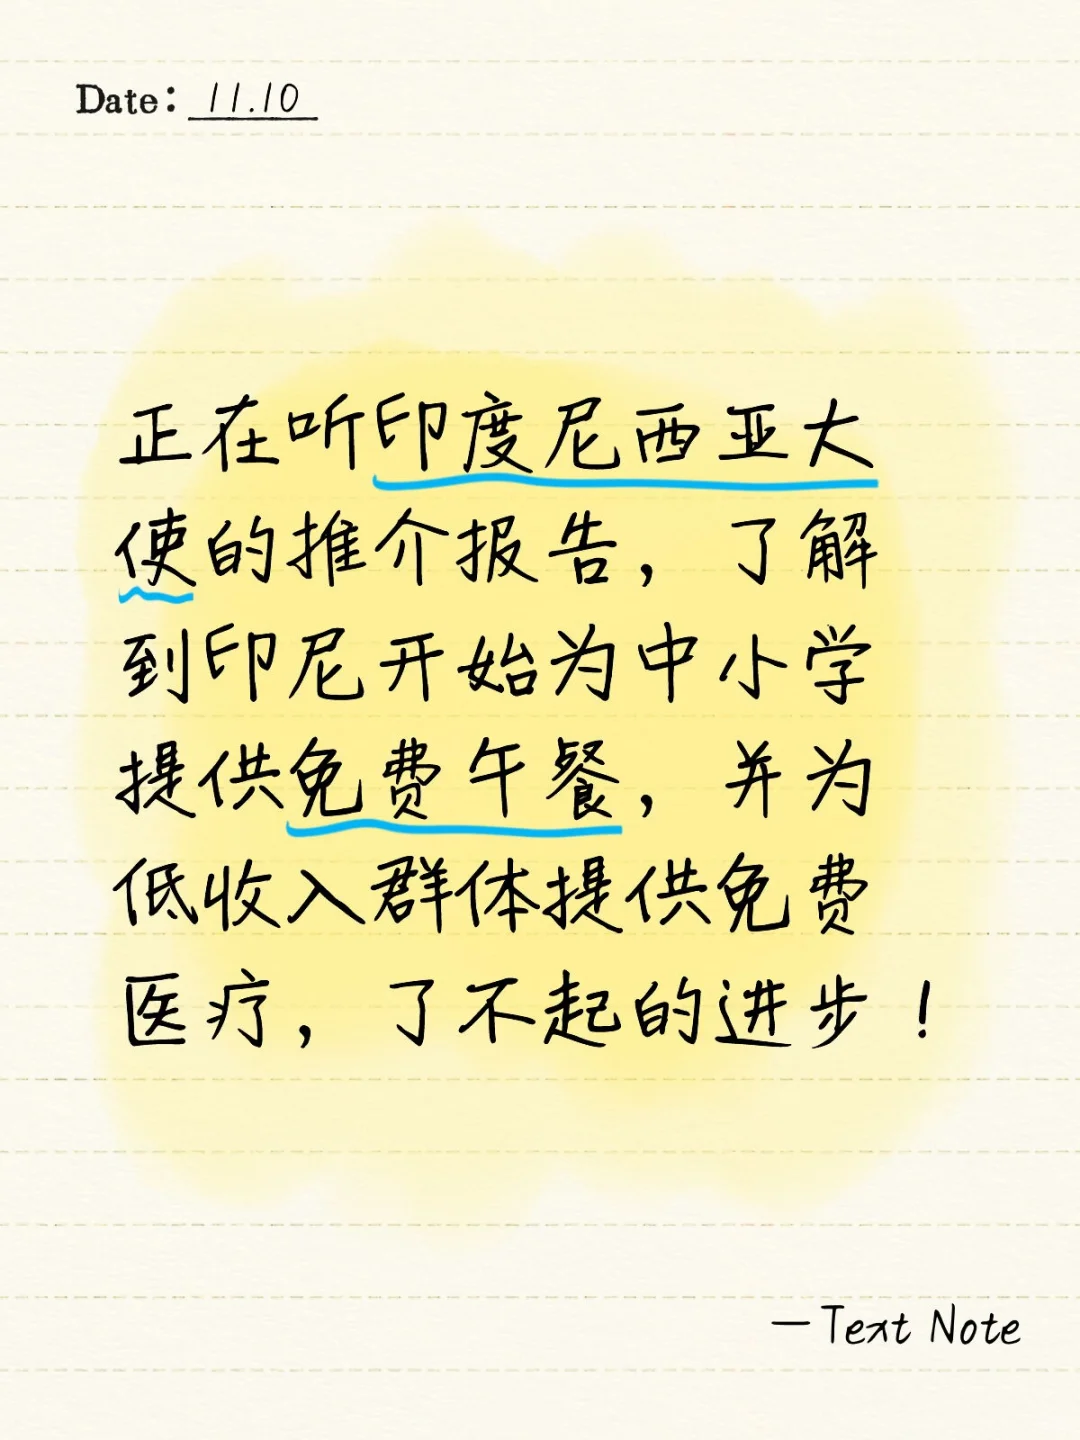 Date: 11.10
正在听印度尼西亚大
使的推介报告，了解
到印尼开始为中小学
提供免费午餐，并为
低收入群体提供免费
医疗，了不起的进步！
—Text Note